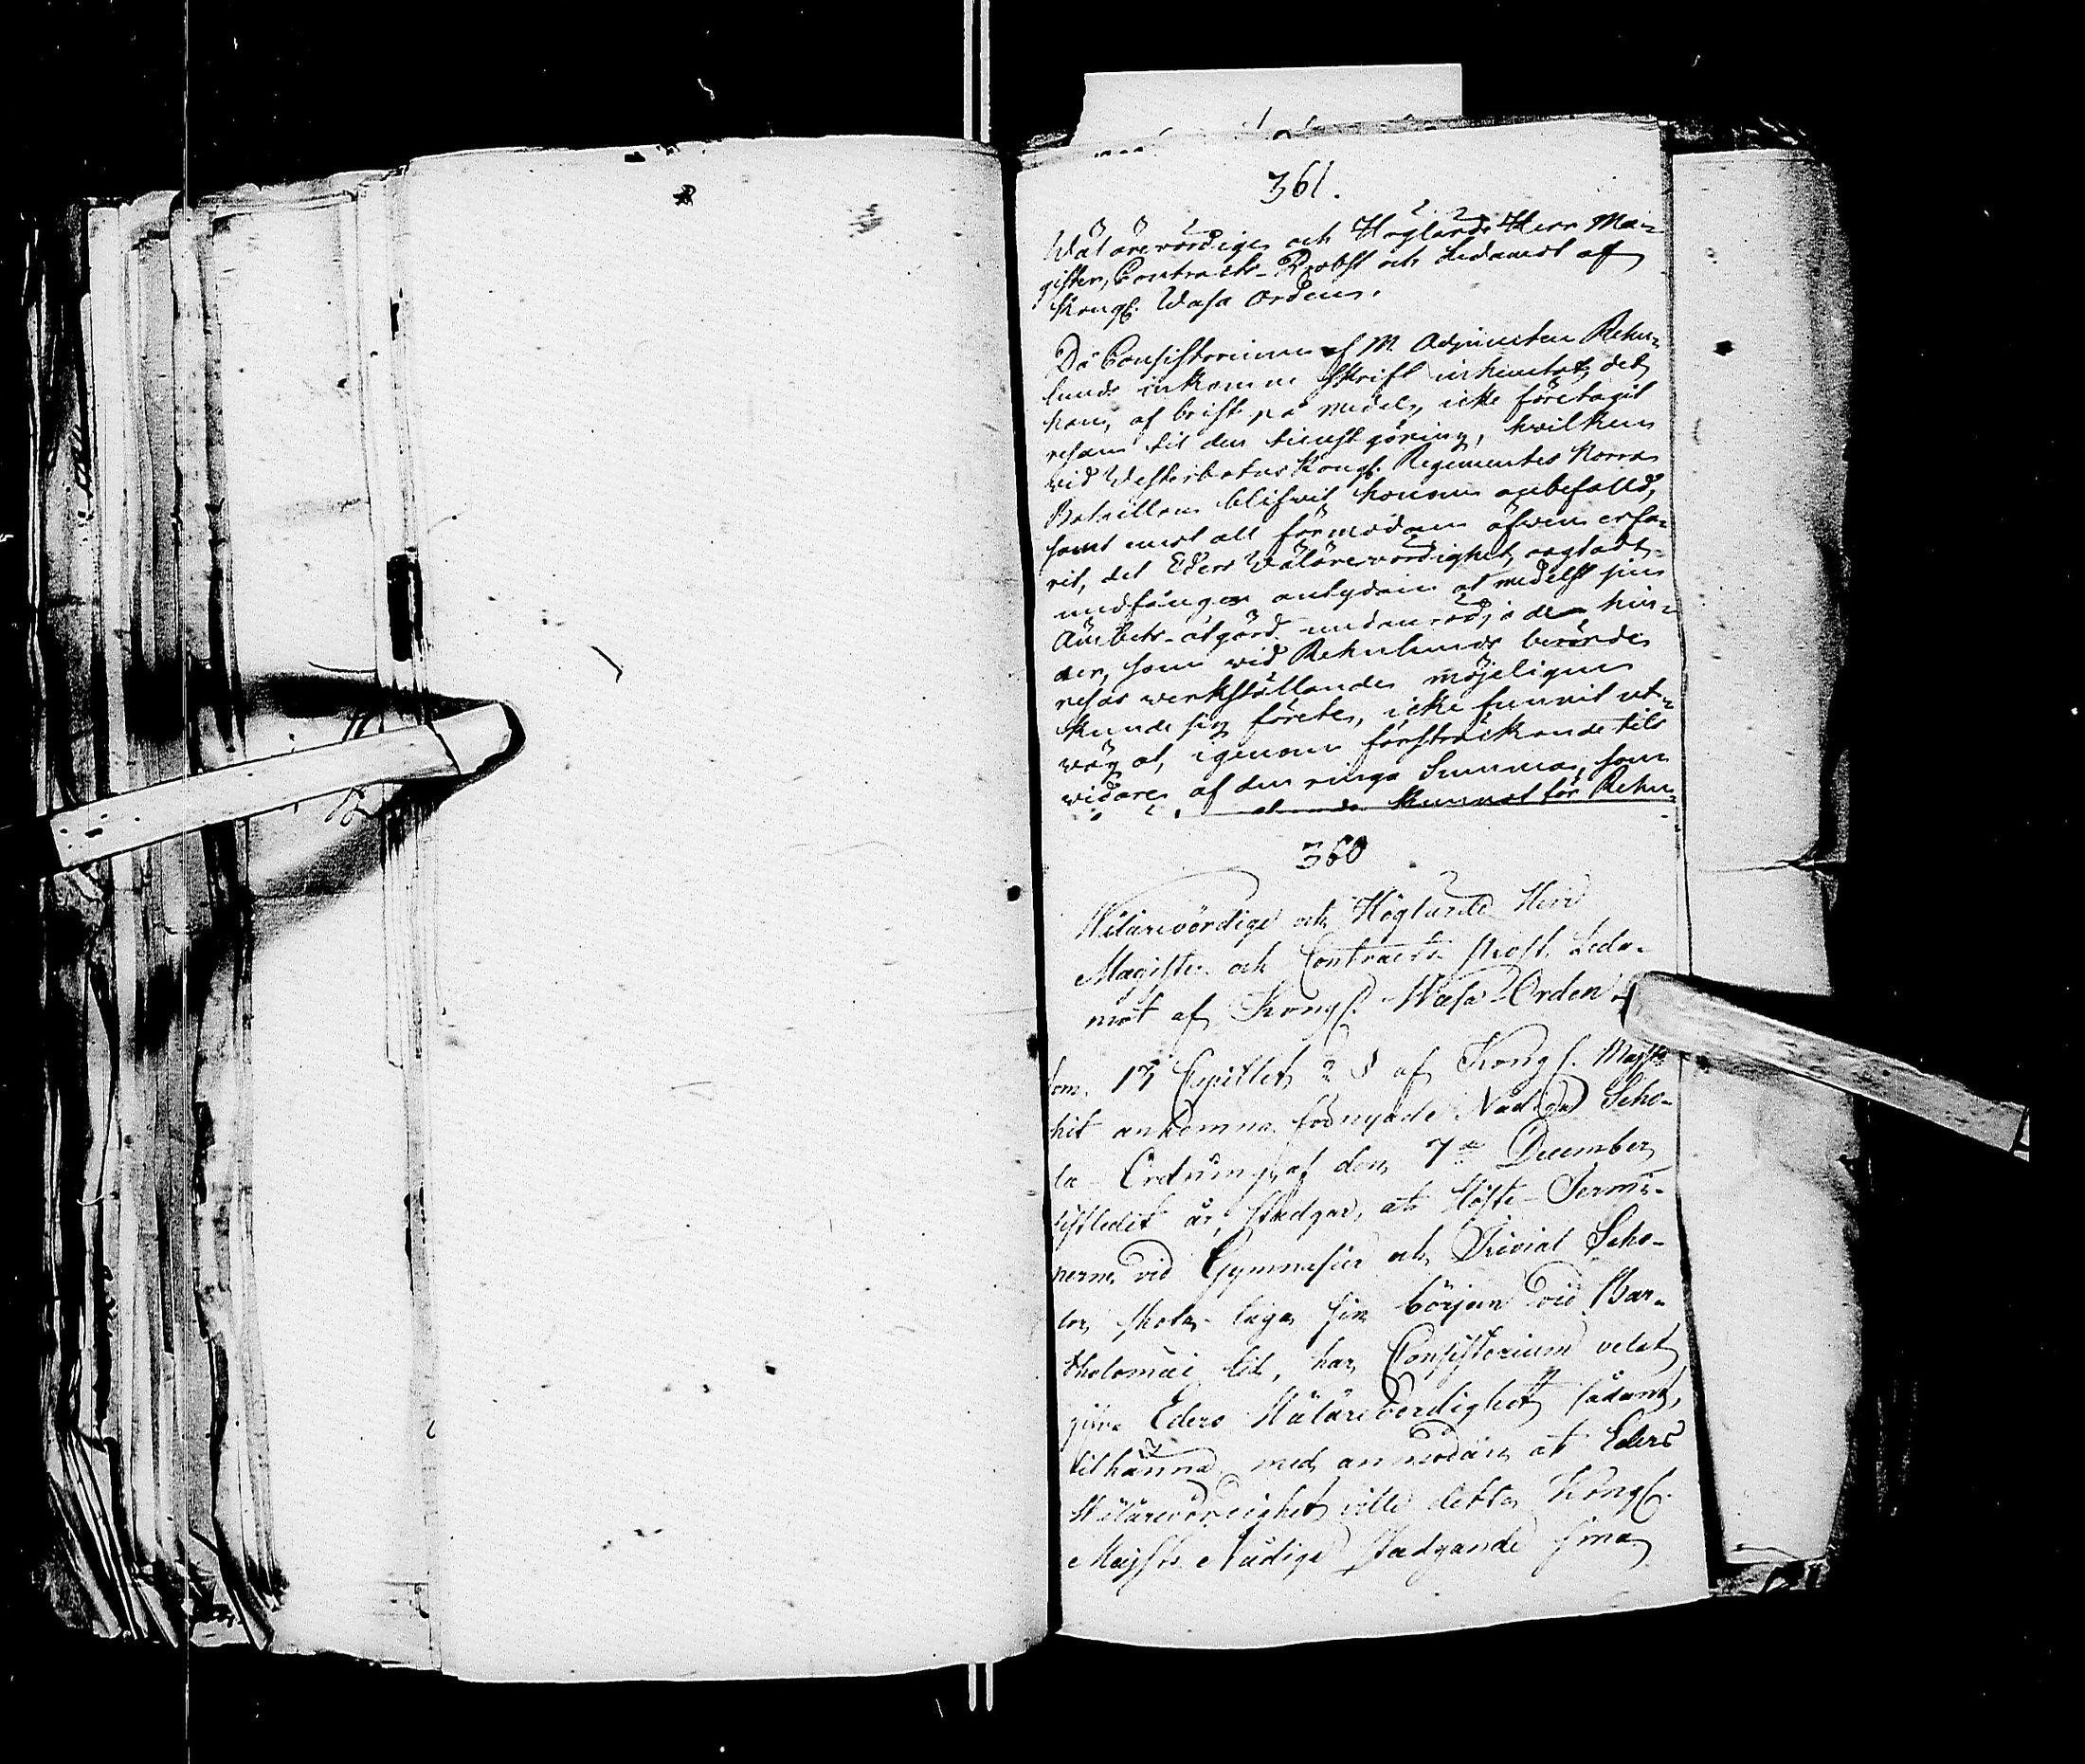 361.
Wälärevördige och Höglärde Herr Ma-
gister, Contracts-Probst och Ledamot af
Kongl. Wasa Orden.
Då Consistorium af M. Adjuncten Rehn-
lunds inkomne skrift inhemtat, det
han, af brist på medel, icke företagit
resan til den tienstgöring, hvilken
vid Westerbottns Kongl. Regementes Norra
Bataillon blifvit honom anbefalld,
samt emot all förmodan äfwen erfa-
rit, det Eders Wälärevördighet, oagtadt
undfången antydan at medelst sin
Ämbets-åtgärd undanrödja de hin-
der, som vid Rehnlunds berörde
resas werkställande möjeligen
kunde sig förete, icke funnit ut-
väg at, igenom försträckande tils
vidare af den ringa Summa, som
kunnat för Rehn-
360
Wälärevördige och Höglärde Herr
Magister och Contracts Prost, Leda-
mot af Kongl. Wasa Orden.
Som 13 Capitlet 2 § af Kongl. Majts
hit ankomna förnyade Nådiga Scho-
la-Ordning, af den 7de December
sistledet år, stadgar, at Höste-Termi-
nerne vid Gymnasier och Trivial Scho-
lor, skola taga sin början vid Bar-
tholomæi tid, har Consistorium velat
gifva Eders Wälärevördighet sådant,
tilkänna, med anmodan at Eders
Wälärevördighet ville detta Kongl.
Majsts Nådige stadgande sina